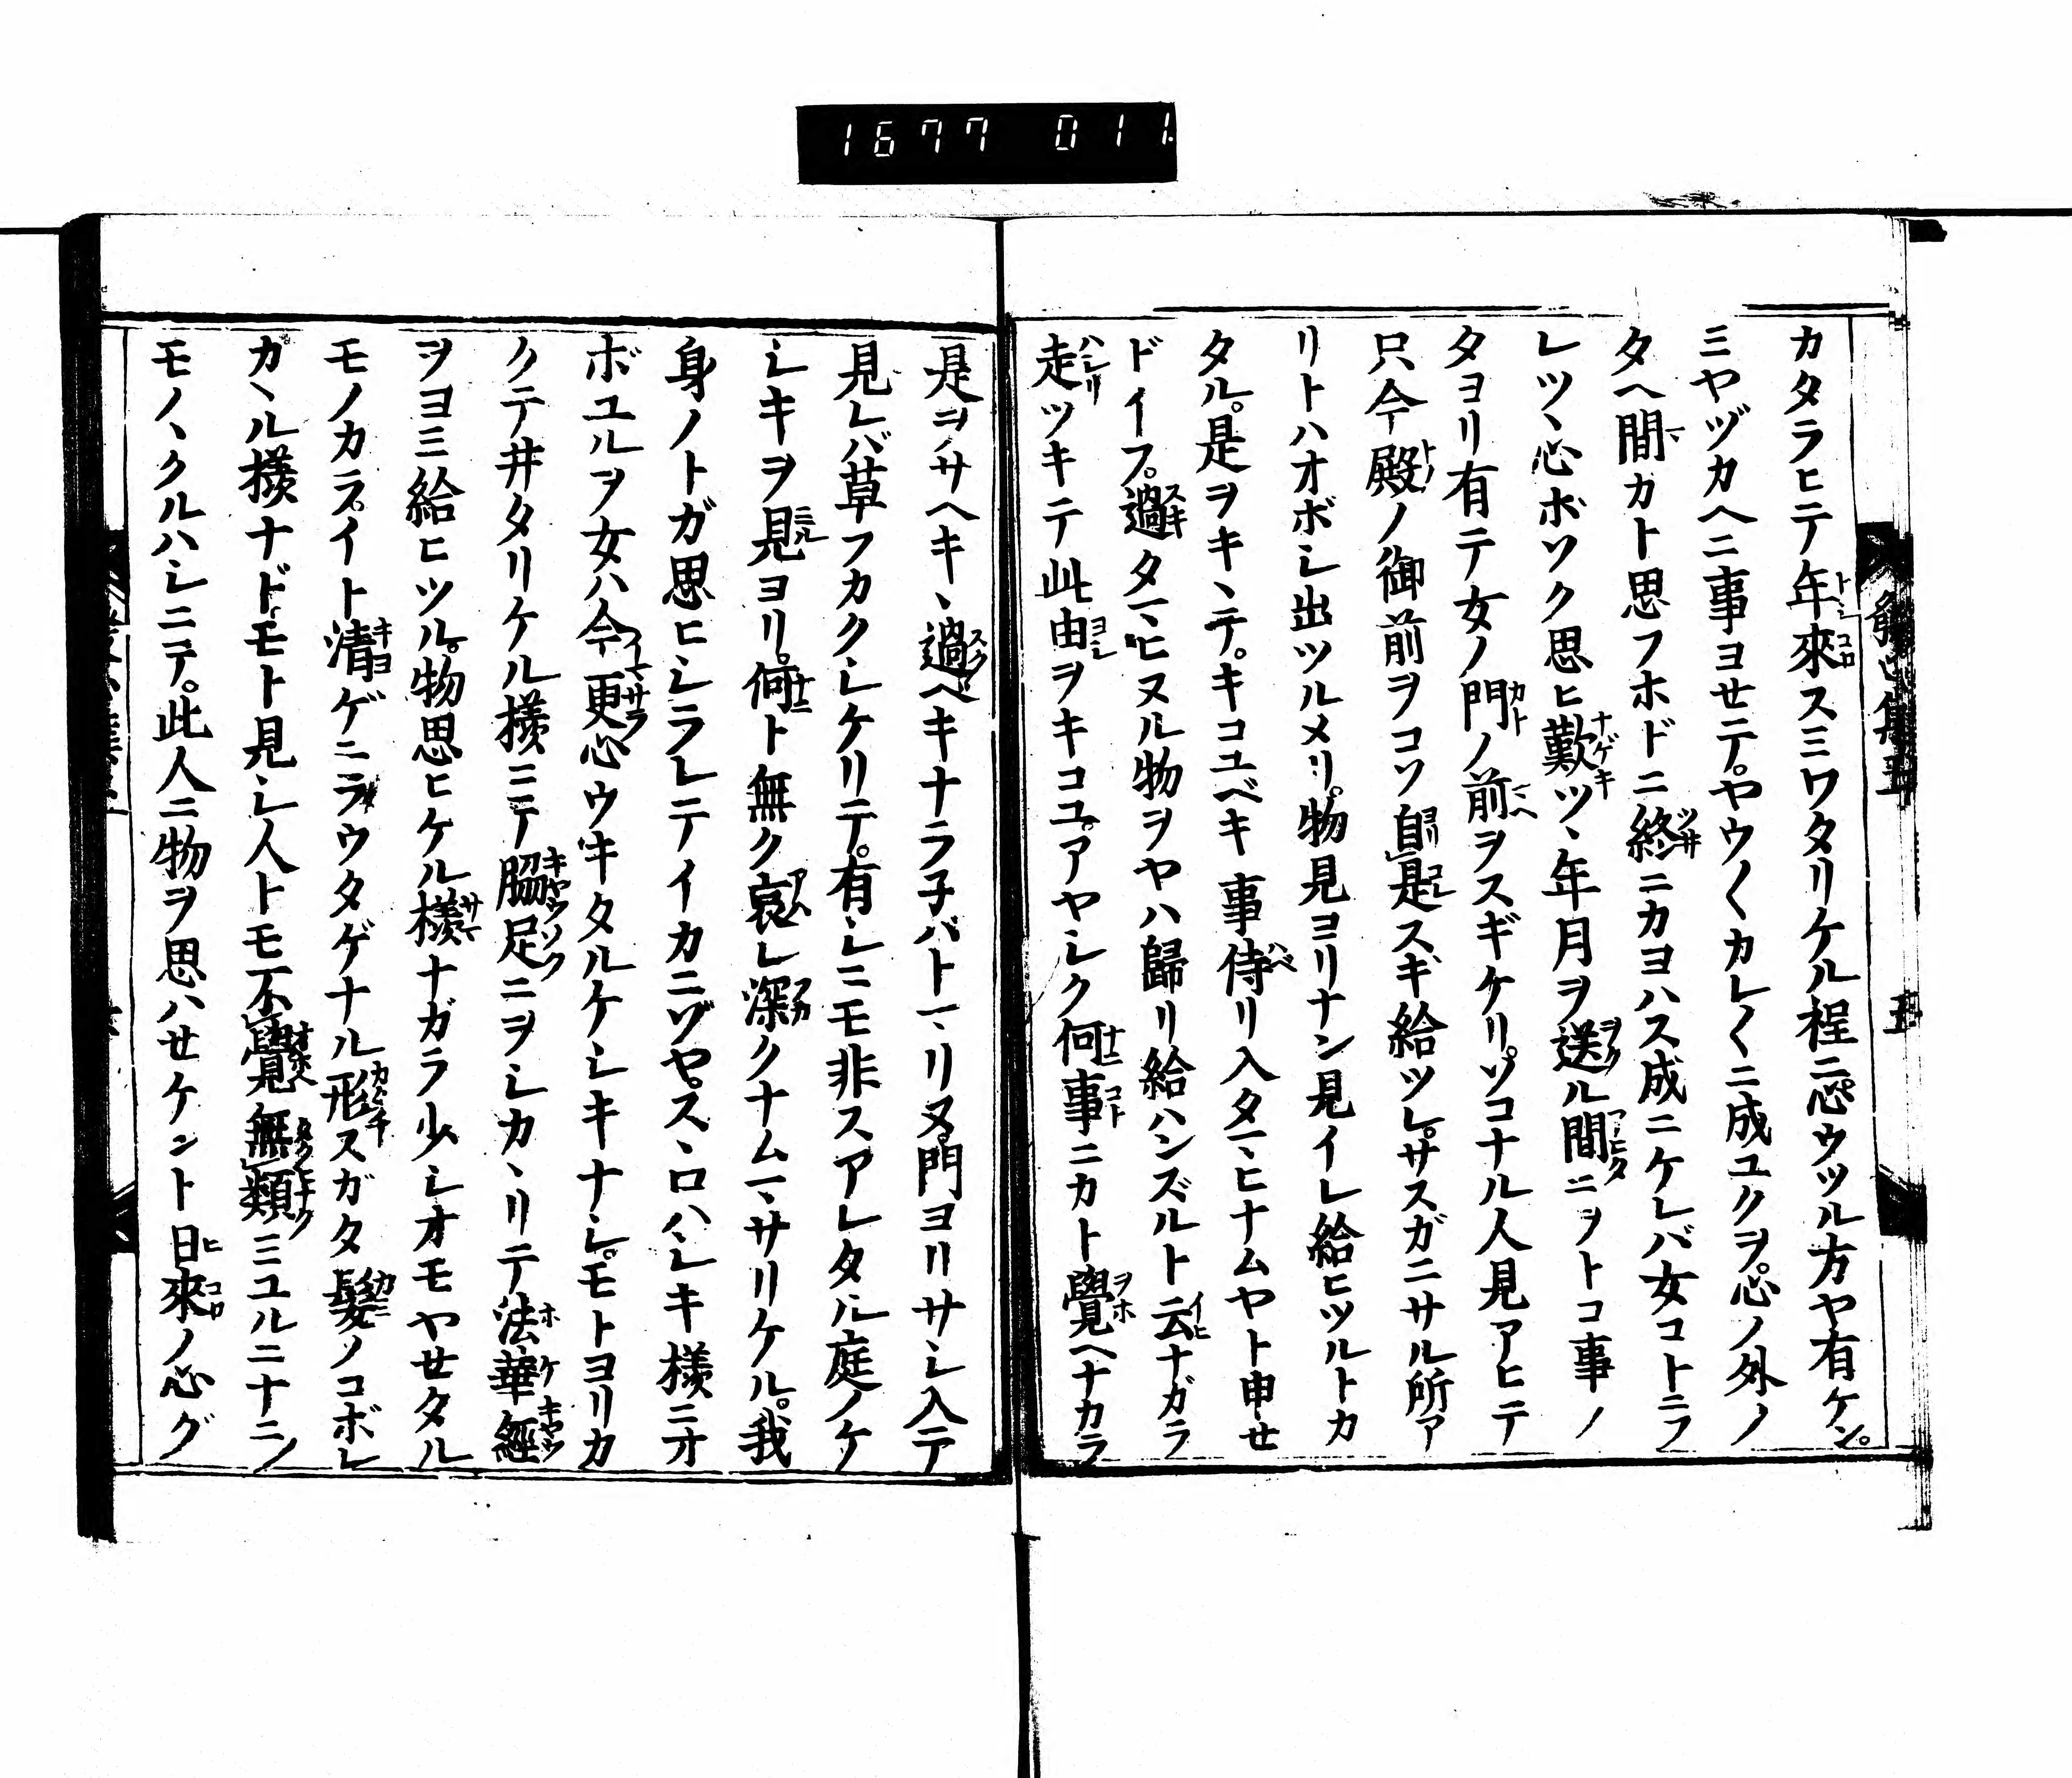 1677 011
カタラヒテ年來スミワタリケル程ニ心ウツル方ヤ有ケン。
ミヤヅカヘニ事ヨせテ。ヤウ〱カレ〱ニ成ユクヲ。心ノ外ノ
タヘ間カト思フホドニ終ニカヨハス成ニケレバ女コトニフ
レツヽ心ボソク思ヒ歎ツヽ年月ヲ送ル間ニヲトコ事ノ
タヨリ有テ女ノ門ノ前ヲスギケリ。ソコナル人見アヒテ
只今殿ノ御前ヲコソ自是スギ給ツレ。サスガニサル所ア
リトハオボシ出ツルメリ。物見ヨリナン見イレ給ヒツルトカ
タル。是ヲキヽテ。キコユベキ事侍リ入タマヒナムヤト申せ
ドイフ。過タマヒヌル物ヲヤハ歸リ給ハンズルト云ナガラ
走ツキテ此由ヲキコユ。アヤシク何事ニカト覺ヘナカラ
是ヲサヘキヽ過ヘキナラ子バトマリヌ。門ヨリサシ入テ
見レバ草フカクシケリテ。有シニモ非スアレタル庭ノケ
シキヲ見ヨリ。何ト無ク哀レ深クナムマサリケル。我
身ノトガ思ヒシラレテイカニゾヤ。スヽロハシキ様ニオ
ボユルヲ女ハ今更心ウキタルケシキナシ。モトヨリカ
クテ井タリケル様ニテ脇足ニヲシカヽリテ法華經
ヲヨミ給ヒツル。物思ヒケル様ナガラ少シオモヤせタル
モノカラ。イト清ゲニラウタゲナル形スガタ髮ノコボレ
カヽル様ナドモト見シ人トモ不覺見無類ミユルニナニノ
モノヽクルハシニテ。此人ニ物ヲ思ハせケント日來ノ心グ